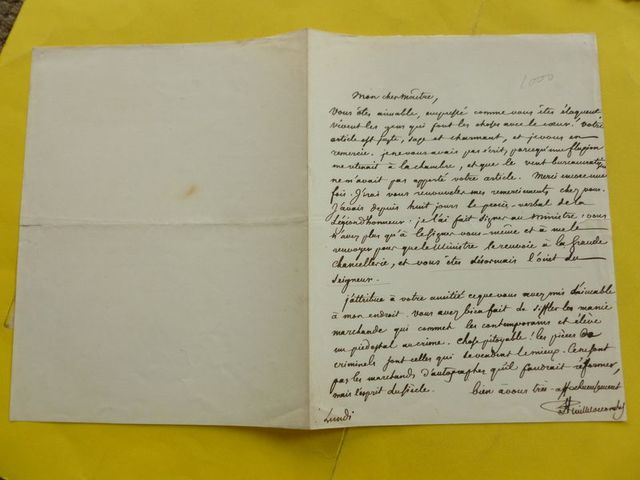 1000
Mon cher Maître,
Vous êtes aimable, empressé comme vous êtes éloquent
vivent les gens qui font les choses avec le cœur. Votre
article est juste, sage et charmant, et je vous en
remercie. je ne vous avais pas écrit, parcequ'une fluxion
me retenait à la chambre, et que le vent bureaucratique
ne m'avait pas apporté votre article. Merci encore une
fois. J'irai vous renouveler mes remerciements chez vous.
J'avais depuis huit jours le procès-verbal de la
Légion d'honneur : je l'ai fait signer au Ministre : vous
n'avez plus qu'à le signer vous-même et à me le
renvoyer pour que le Ministre le renvoie à la Grande
Chancellerie, et vous êtes désormais l'oint du
Seigneur.
j'attribue à votre amitié ce que vous avez mis d'aimable
à mon endroit. Vous avez bien fait de siffler les manie
marchande qui commet les contemporains et élève
un piédestal au crime. Chose pitoyable ! les pièces de
criminels sont celles qui se vendent le mieux. Ce ne sont
pas les marchands d'autographes qu'il faudrait réformer,
mais l'esprit du siècle. bien à vous très affectueusement
Lundi